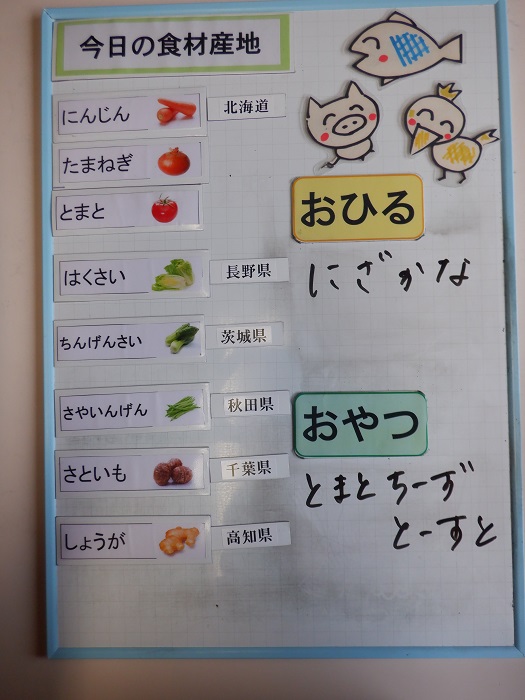 今日の食材産地
にんじん 北海道
たまねぎ
とまと
はくさい 長野県
ちんげんさい 茨城県
さやいんげん 秋田県
さといも 千葉県
しょうが 高知県
おひる
にざかな
おやつ
とまとちーず
とーすと